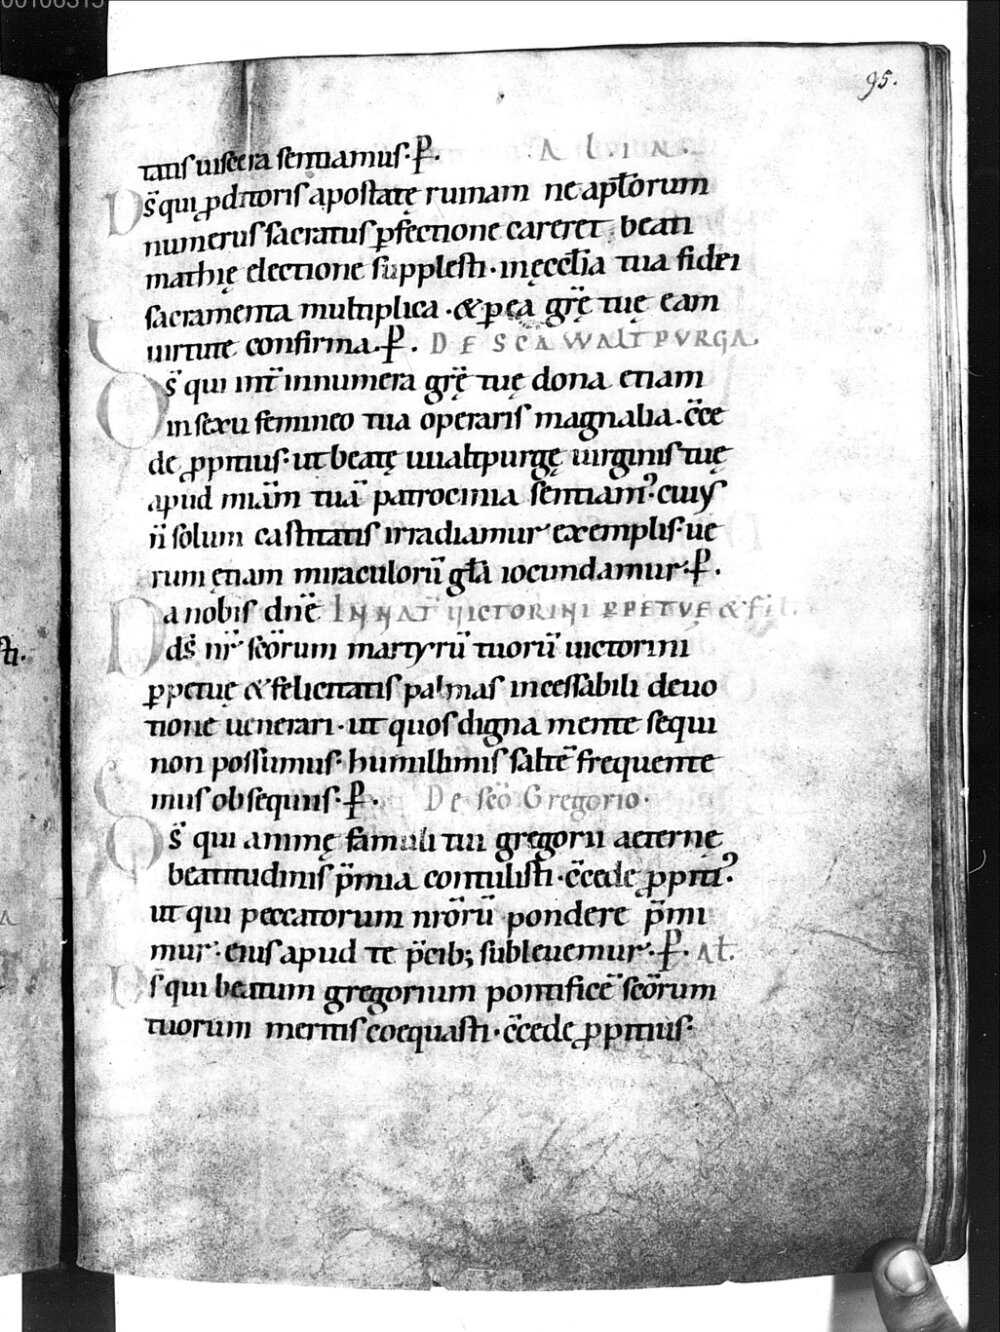 95.
tatis uiscera sentiamus·ꝑ. ALIA.
D s̄ qui ꝓditoris apostatę ruinam ne apl̄orum
numerus sacratus ꝑfectione careret· beati
mathię electione supplesti· inęccl̄ia tua fidei
sacramenta multiplica· & ꝑ ea gr̄ę tuę eam
uirtute confirma·ꝑ. DE SC̄A WALTPVRGA.
D s̄ qui int̄ innumera gr̄ę tuę dona etiam
in sexu femineo tua operaris magnalia· c̄ce
de ꝓpitius· ut beatę uualtpurgę uirginis tuę
apud miām tuā patrocinia sentiam᾿· cuiꝰ
n̄ solum castitatis irradiamur exemplis· ue
rum etiam miraculorū gl̄a iocundamur·ꝑ.
D a nobis dn̄e IN NAT̄ VICTORINI PPETVE & fel.
ds̄ nr̄ sc̄orum martyrū tuorū uictorini
ꝑpetuę & felicitatis palmas incessabili deuo
tione uenerari· ut quos digna mente sequi
non possumus· humillimis saltē frequente
mus obsequiis·ꝑ. De sc̄o Gregorio·
D s̄ qui animę famuli tui gregorii aeternę
beatitudinis p̄mia contulisti· c̄cede ꝓpiti᾿·
ut qui peccatorum nr̄orū pondere p̄mi
mur· eius apud te p̄cib; subleuemur·ꝑ. Al̄.
D s̄ qui beatum gregorium pontificē sc̄orum
tuorum meritis coequasti· c̄cede ꝓpitius·